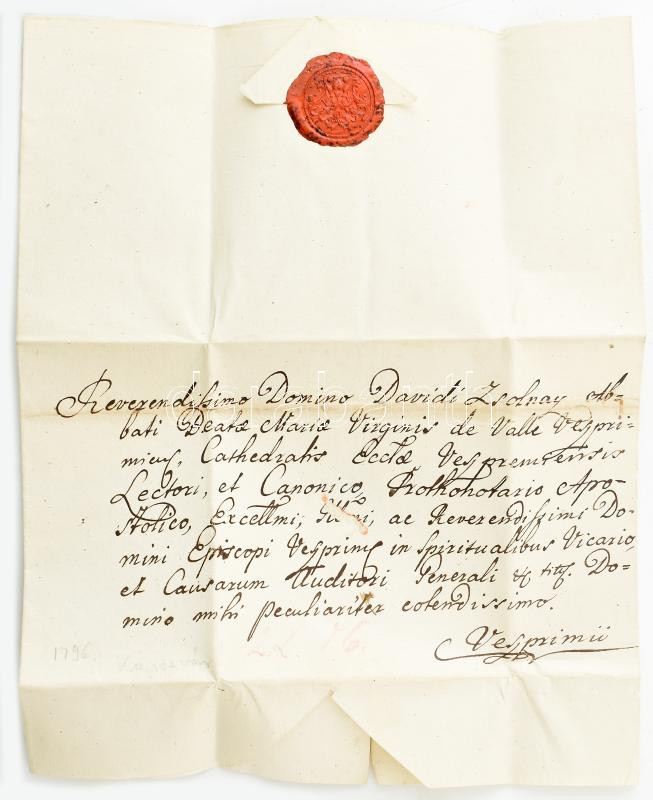 Reverendissimo Domino Davidi Zsolnay Ab=
bati Beatæ Mariæ Virginis de Valle Vespri=
miens, Cathedralis Ecclæ Vesprimiensis
Lectori, et Canonico, Prothonotario Apo=
stolico, Excellmi, ac Reverendissimi Do=
mini Episcopi Vesprims in Spiritualibus Vicario,
et Causarum Auditori Generali & titt. Do=
mino mihi peculiariter colendissimo.
Vesprimii
1796.